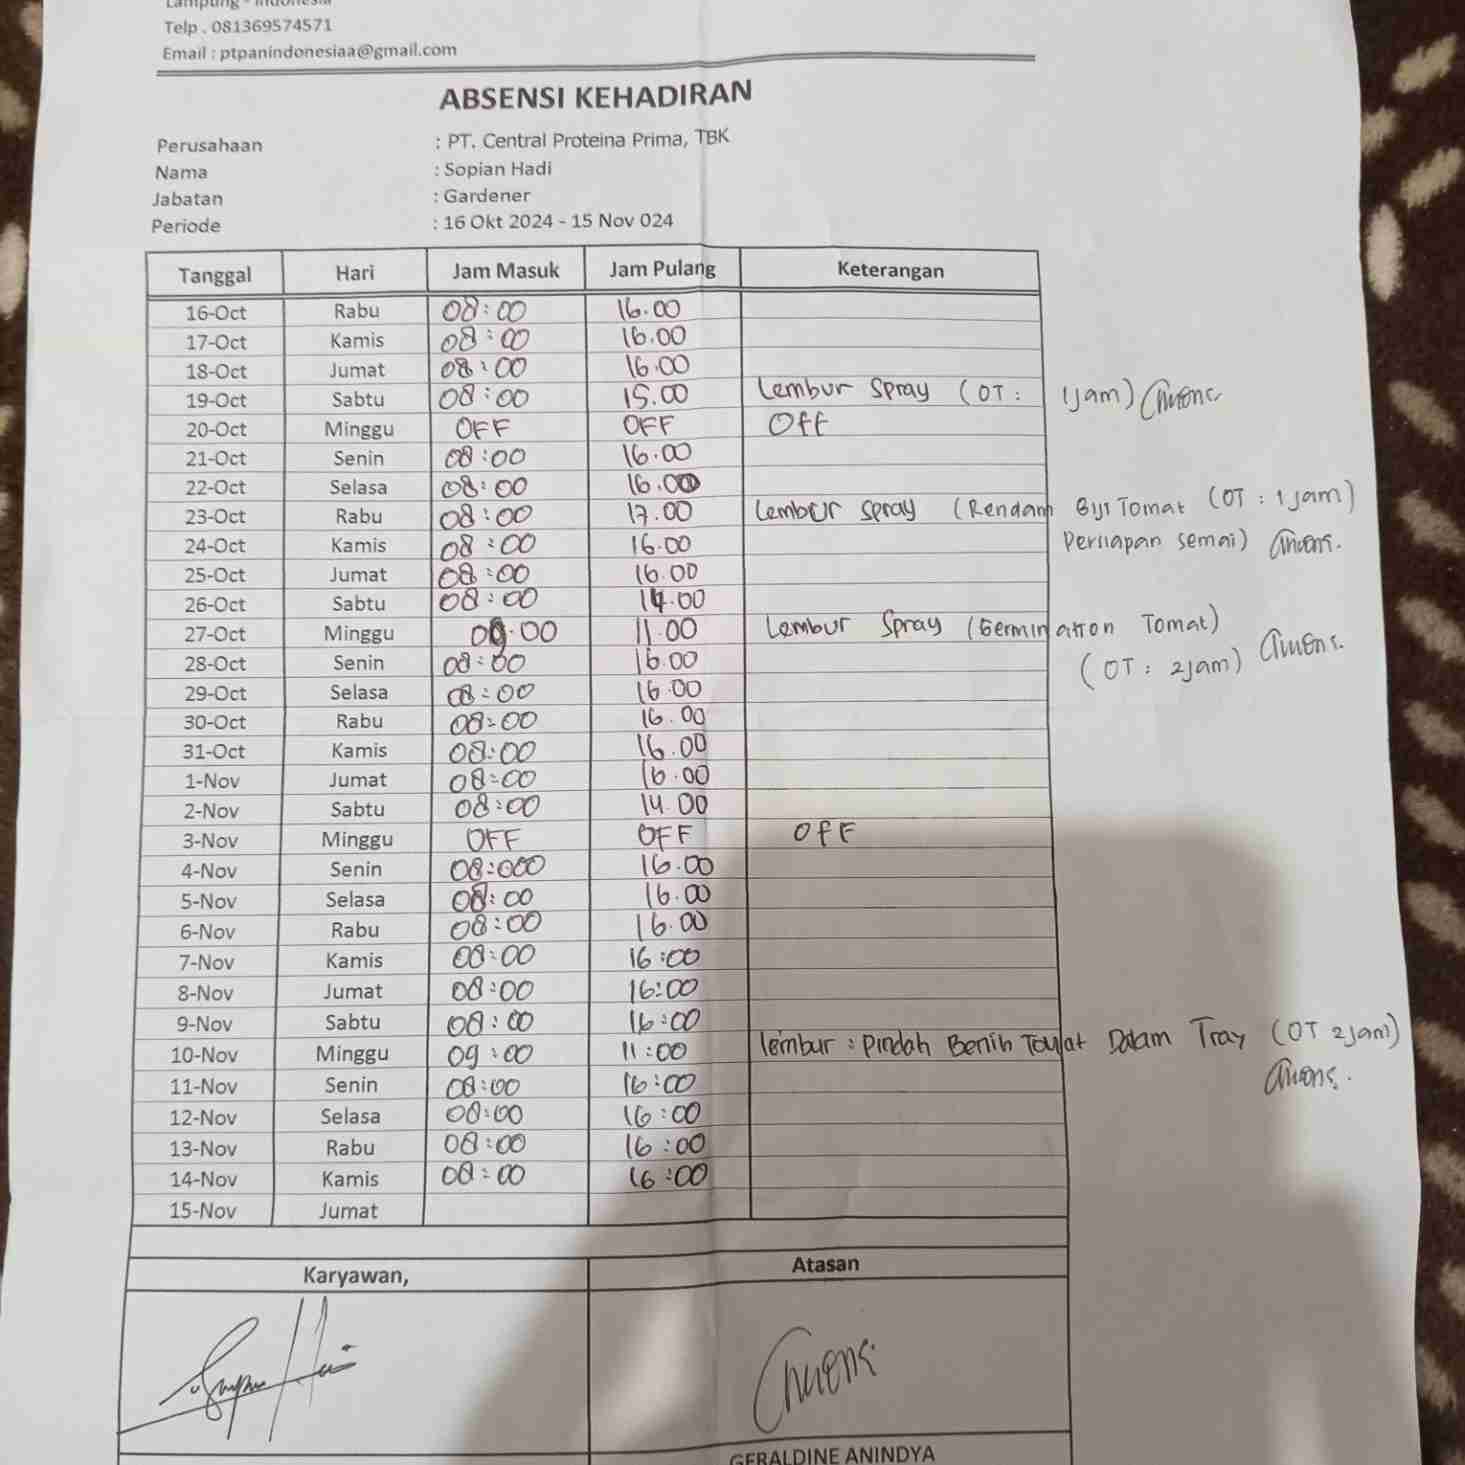 Lampung - Indonesia
Telp . 081369574571
Email : ptpanindonesiaa@gmail.com
ABSENSI KEHADIRAN
Perusahaan : PT. Central Proteina Prima, TBK
Nama : Sopian Hadi
Jabatan : Gardener
Periode : 16 Okt 2024 - 15 Nov 024
Tanggal Hari Jam Masuk Jam Pulang Keterangan
16-Oct Rabu 08:00 16.00
17-Oct Kamis 08:00 16.00
18-Oct Jumat 08:00 16.00
19-Oct Sabtu 08:00 15.00 Lembur Spray (OT : 1jam)
20-Oct Minggu OFF OFF Off
21-Oct Senin 08:00 16.00
22-Oct Selasa 08:00 16.00
23-Oct Rabu 08:00 17.00 Lembur Spray (Rendam Biji Tomat (OT : 1 jam)
Persiapan semai)
24-Oct Kamis 08:00 16.00
25-Oct Jumat 08:00 16.00
26-Oct Sabtu 08:00 14.00
27-Oct Minggu 09.00 11.00 Lembur Spray (Germination Tomat)
(OT : 2jam)
28-Oct Senin 08:00 16.00
29-Oct Selasa 08:00 16.00
30-Oct Rabu 08:00 16.00
31-Oct Kamis 08:00 16.00
1-Nov Jumat 08:00 16.00
2-Nov Sabtu 08:00 14.00
3-Nov Minggu OFF OFF OFF
4-Nov Senin 08:000 16.00
5-Nov Selasa 08:00 16.00
6-Nov Rabu 08:00 16.00
7-Nov Kamis 08:00 16:00
8-Nov Jumat 08:00 16:00
9-Nov Sabtu 08:00 16:00
10-Nov Minggu 09:00 11:00 lembur : Pindah Benih Tomat Dalam Tray (OT 2jam)
11-Nov Senin 08:00 16:00
12-Nov Selasa 08:00 16:00
13-Nov Rabu 08:00 16:00
14-Nov Kamis 08:00 16:00
15-Nov Jumat
Karyawan, Atasan
GERALDINE ANINDYA